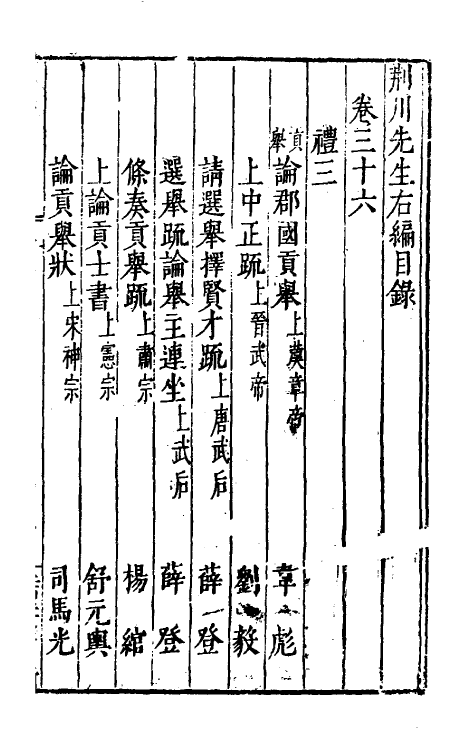 荆川先生右編目錄
卷三十六
禮三
貢舉論郡國貢舉上漢章帝 韋彪
上中正䟽上晉武帝 劉毅
請選舉擇賢才䟽上唐武后 薛登
選舉䟽論舉主連坐上武后 薛登
條奏貢舉䟽上肅宗 楊綰
上論貢士書上憲宗 舒元輿
論貢舉狀上宋神宗 司馬光